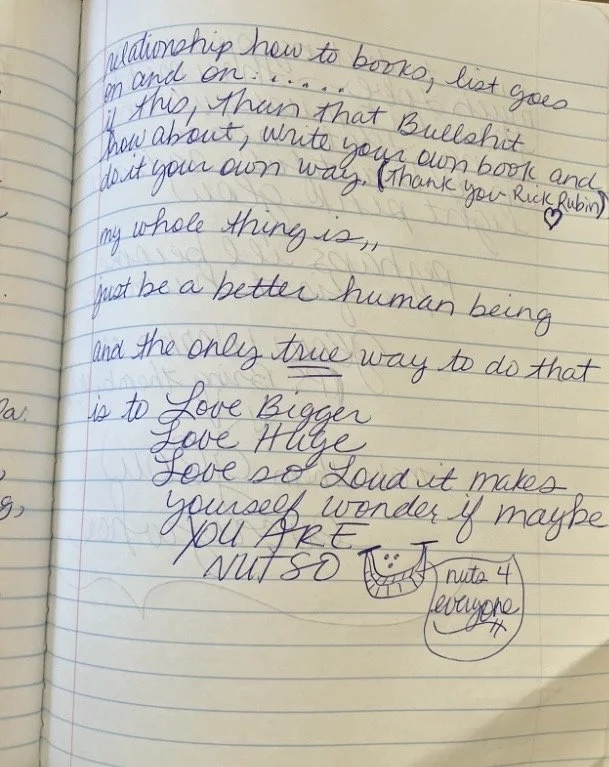 relationship how to books, list goes
on and on: . . . . .
if this, than that Bullshit
how about, write your own book and
do it your own way. (Thank you Rick Rubin)
♡
my whole thing is,,
just be a better human being
and the only true way to do that
is to Love Bigger
Love Huge
Love so Loud it makes
yourself wonder if maybe
YOU ARE
NUTSO
nuts 4
everyone